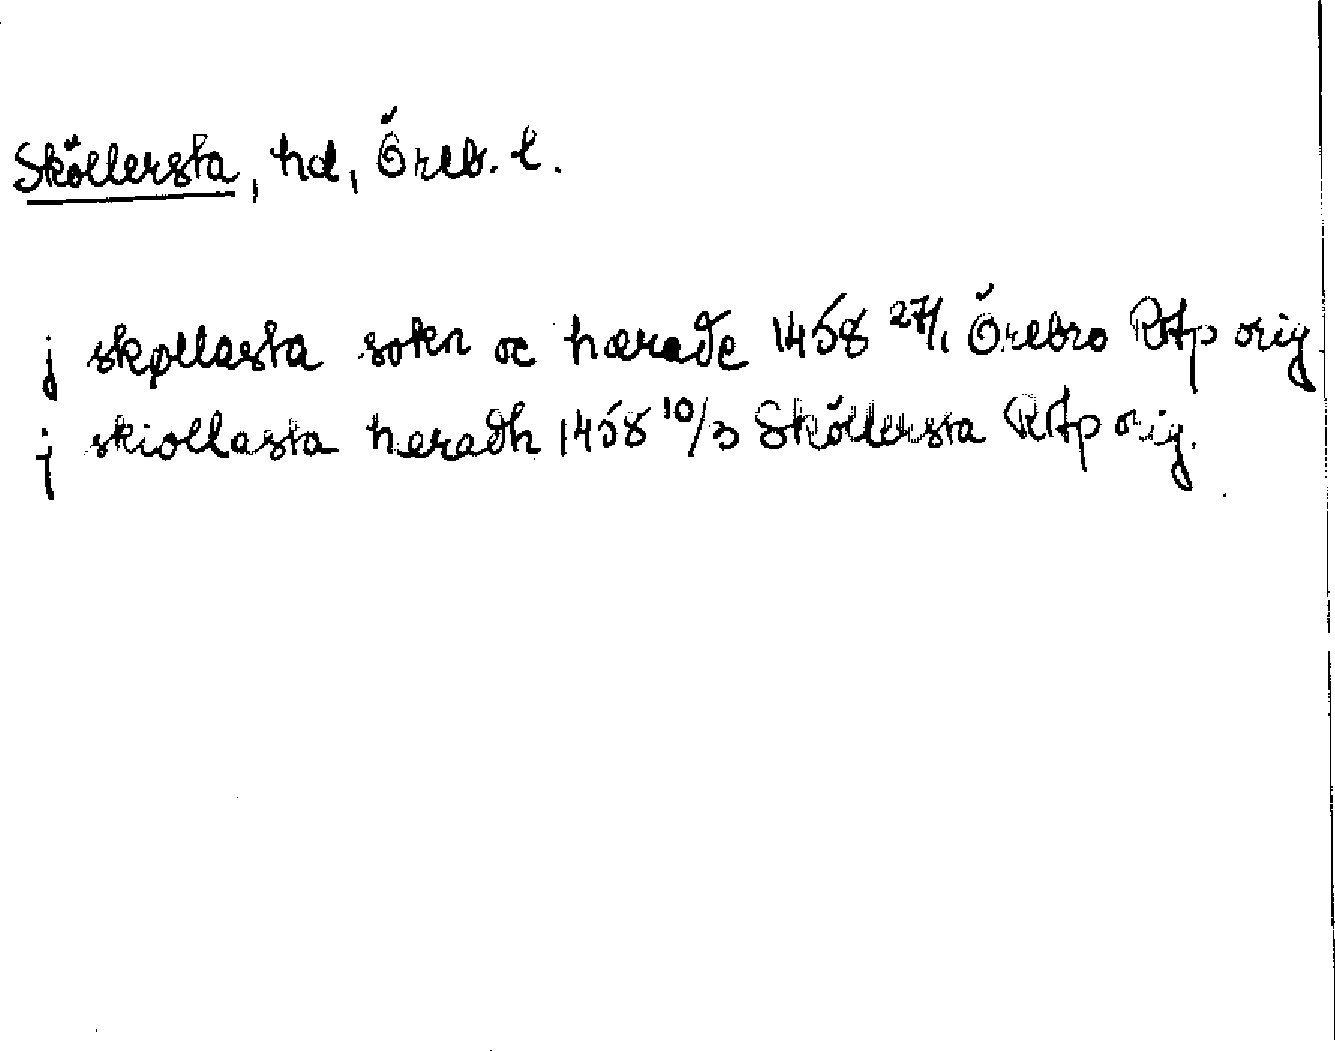 Sköllersta, hd, Öreb. l.
j skøllasta sokn oc hæraðe 1458 27/1 Örebro RAp orig
j skiollasta heradh 1458 10/3 Sköllersta RAp orig.